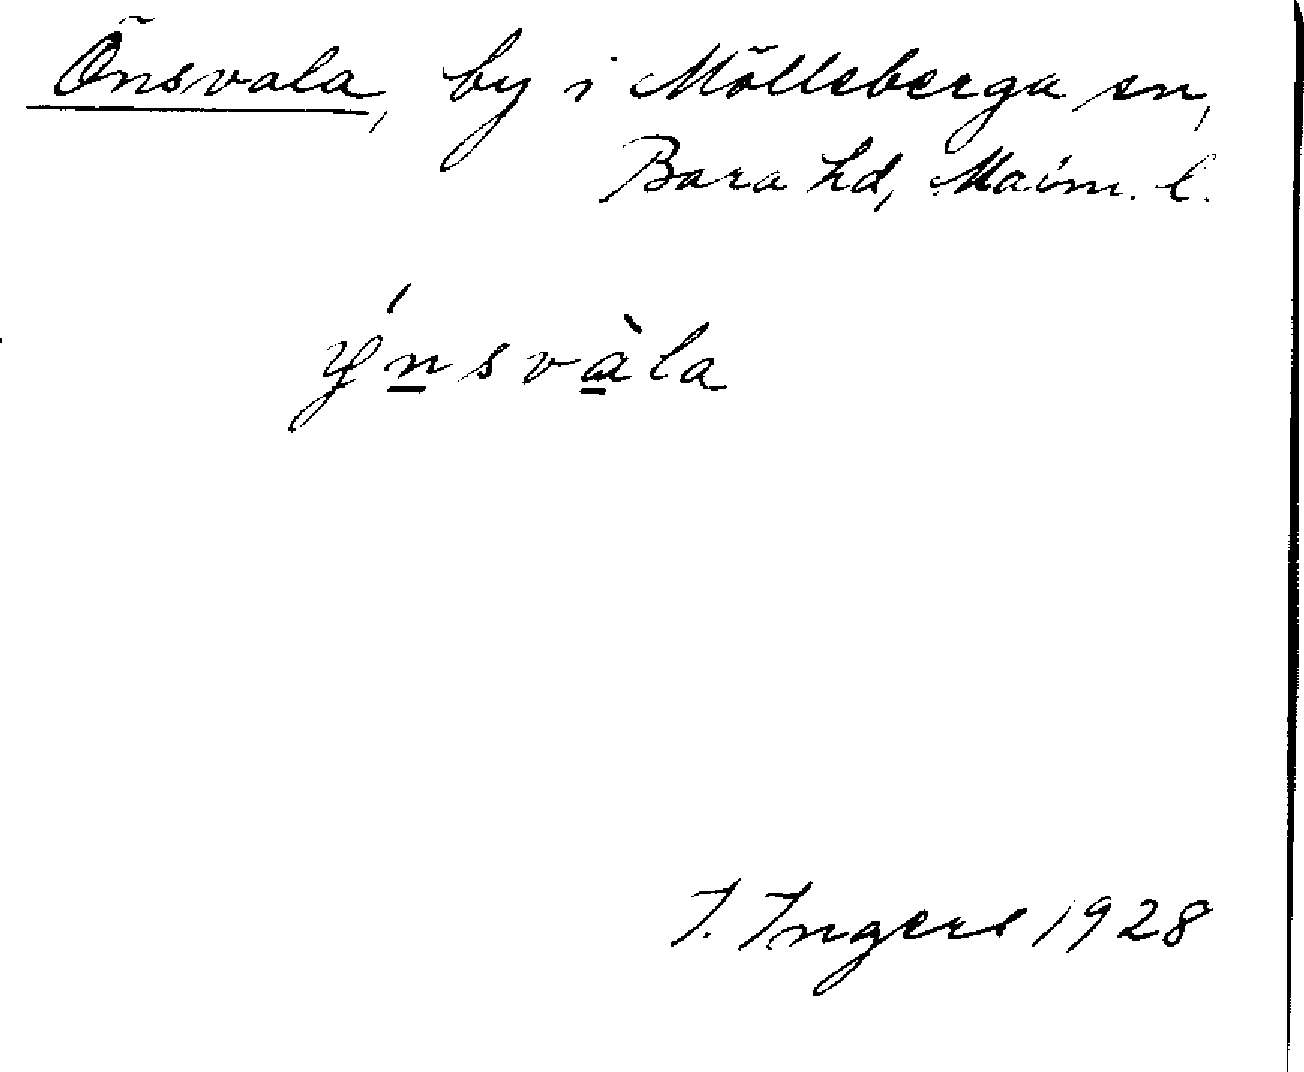 Önsvala, by i Mölleberga sn,
Bara hd, Malm. l.
ýnsvàla
I. Ingers 1928